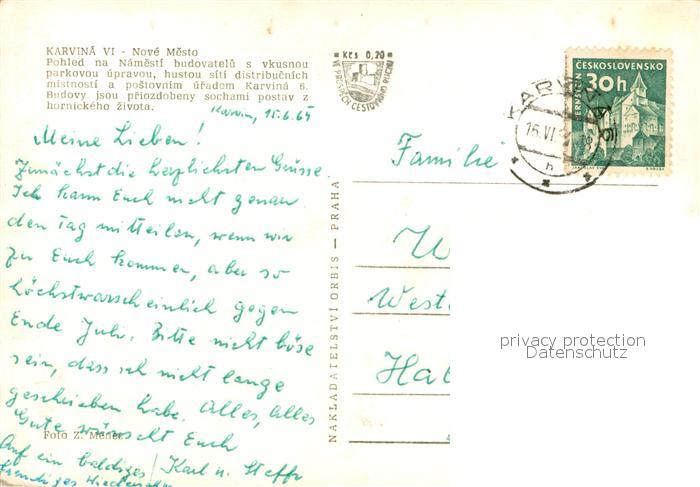 KARVINÁ VI - Nové Město
Pohled na Náměstí budovatelů s vkusnou
parkovou úpravou, hustou sítí distribučních
místností a poštovním úřadem Karviná 6.
Budovy jsou přiozdobeny sochami postav z
hornického života.
Karvin, 15.6.65
Meine Lieben!
Zunächst die herzlichsten Grüsse.
Ich kann Euch nicht genau
den Tag mitteilen, wenn wir
zu Euch kommen, aber so
höchstwarscheinlich gegen
Ende Juli. Bitte nicht böse
sein, dass ich nicht lange
geschrieben habe. Alles, Alles
Gute wünscht Euch
Foto Z. Menec
Auf ein baldiges / Karl u. Steffi
freudiges Wiedersehn
NAKLADATELSTVÍ ORBIS — PRAHA
Kčs 0,20
VE PROSPĚCH CESTOVNÍHO RUCHU
KARVINÁ
16.VI
h
ČESKOSLOVENSKO
30h
PERNŠTEJN
Familie
W
West
Hal
privacy protection
Datenschutz